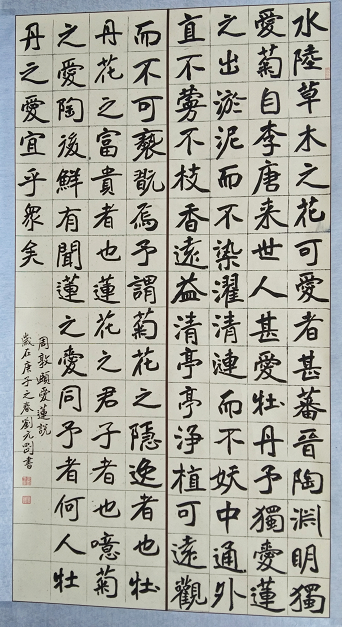 水陸草木之花可愛者甚蕃晉陶淵明獨
愛菊自李唐來世人甚愛牡丹予獨愛蓮
之出淤泥而不染濯清漣而不妖中通外
直不蔓不枝香遠益清亭亭淨植可遠觀
而不可褻翫焉予謂菊花之隱逸者也牡
丹花之富貴者也蓮花之君子者也噫菊
之愛陶後鮮有聞蓮之愛同予者何人牡
丹之愛宜乎眾矣
周敦頤愛蓮說
歲在庚子之春劉書